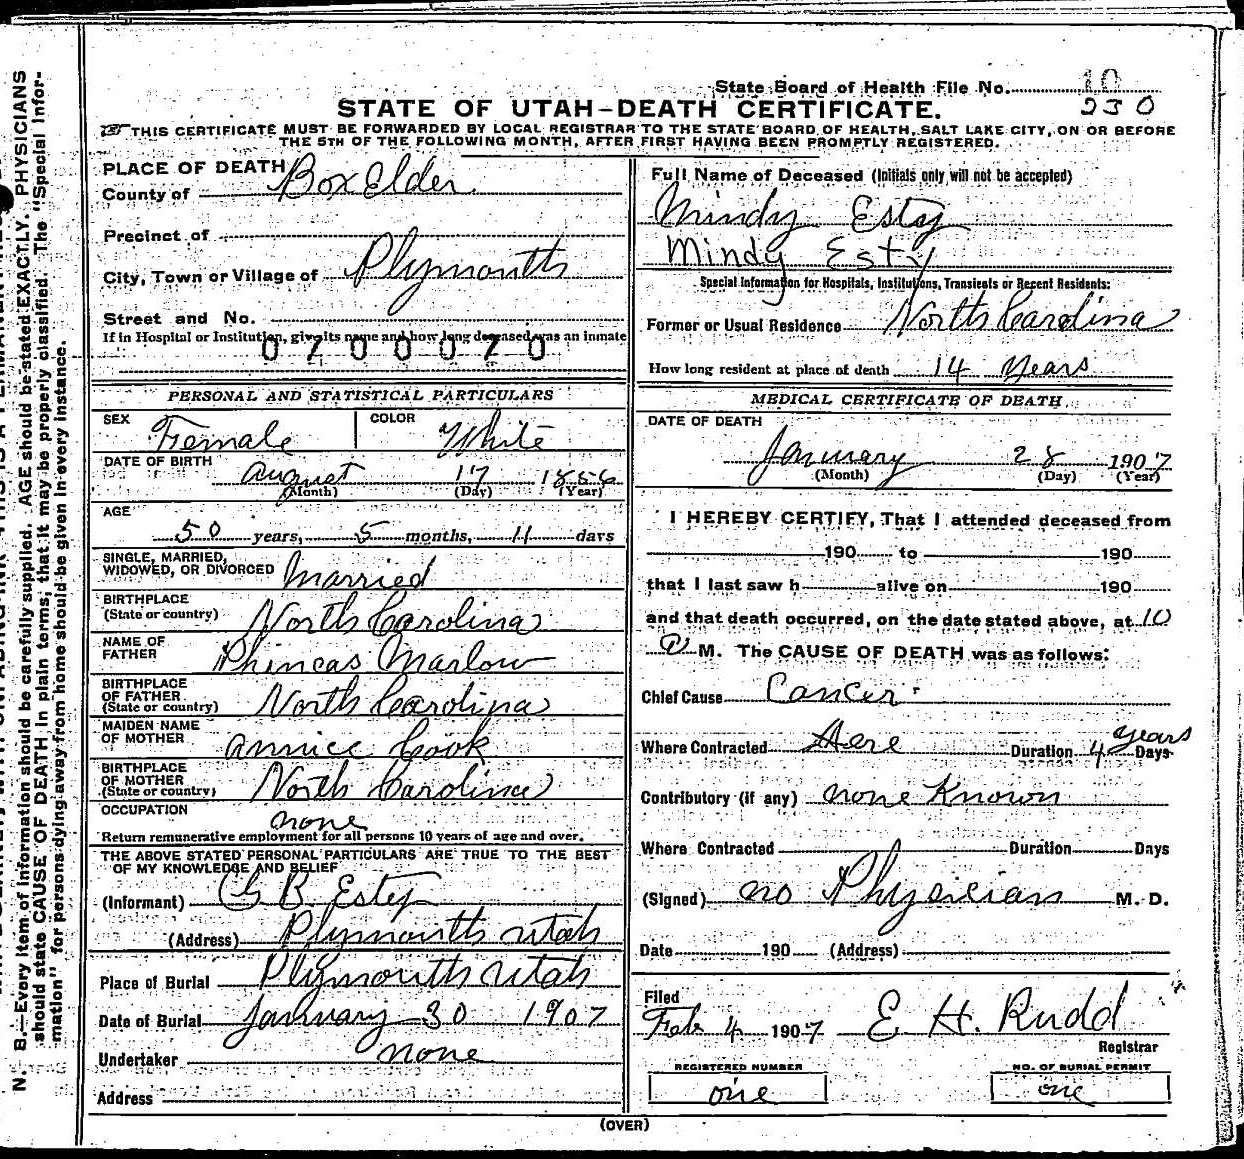 State Board of Health File No. 10
STATE OF UTAH-DEATH CERTIFICATE. 230
THIS CERTIFICATE MUST BE FORWARDED BY LOCAL REGISTRAR TO THE STATE BOARD OF HEALTH, SALT LAKE CITY, ON OR BEFORE
THE 5TH OF THE FOLLOWING MONTH, AFTER FIRST HAVING BEEN PROMPTLY REGISTERED.
PLACE OF DEATH
County of Box Elder
Precinct of
City, Town or Village of Plymouth
Street and No.
If in Hospital or Institution, give its name and how long deceased was an inmate
0700070
PERSONAL AND STATISTICAL PARTICULARS
SEX Female COLOR White
DATE OF BIRTH August 17 1856
(Month) (Day) (Year)
AGE
50 years, 5 months, 11 days
SINGLE, MARRIED,
WIDOWED, OR DIVORCED Married
BIRTHPLACE
(State or country) North Carolina
NAME OF
FATHER Phineas Marlow
BIRTHPLACE
OF FATHER
(State or country) North Carolina
MAIDEN NAME
OF MOTHER Annice Cook
BIRTHPLACE
OF MOTHER
(State or country) North Carolina
OCCUPATION
none
Return remunerative employment for all persons 10 years of age and over.
THE ABOVE STATED PERSONAL PARTICULARS ARE TRUE TO THE BEST
OF MY KNOWLEDGE AND BELIEF
(Informant) G B. Estep
(Address) Plymouth Utah
Place of Burial Plymouth Utah
Date of Burial January 30 1907
Undertaker none
Address
Full Name of Deceased (Initials only will not be accepted)
Mindy Esty
Mindy Esty
Special Information for Hospitals, Institutions, Transients or Recent Residents:
Former or Usual Residence North Carolina
How long resident at place of death 14 Years
MEDICAL CERTIFICATE OF DEATH
DATE OF DEATH
January 28 1907
(Month) (Day) (Year)
I HEREBY CERTIFY, That I attended deceased from
190 to 190
that I last saw h alive on 190
and that death occurred, on the date stated above, at 10
P M. The CAUSE OF DEATH was as follows:
Chief Cause Cancer
Where Contracted Here Duration 4 years Days
Contributory (if any) none Known
Where Contracted Duration Days
(Signed) no Physician M. D.
Date 190 (Address)
Filed
Feb 4 1907 E H. Rudd
Registrar
REGISTERED NUMBER
one
NO. OF BURIAL PERMIT
one
(OVER)
N. B.—Every item of information should be carefully supplied. AGE should be stated EXACTLY. PHYSICIANS
should state CAUSE OF DEATH in plain terms, that it may be properly classified. The "Special Infor-
mation" for persons dying away from home should be given in every instance.